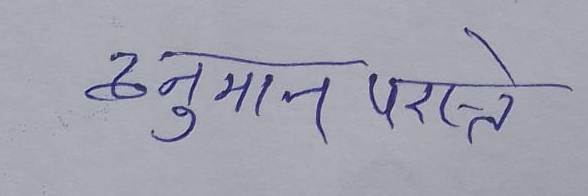 हनुमान परस्ते